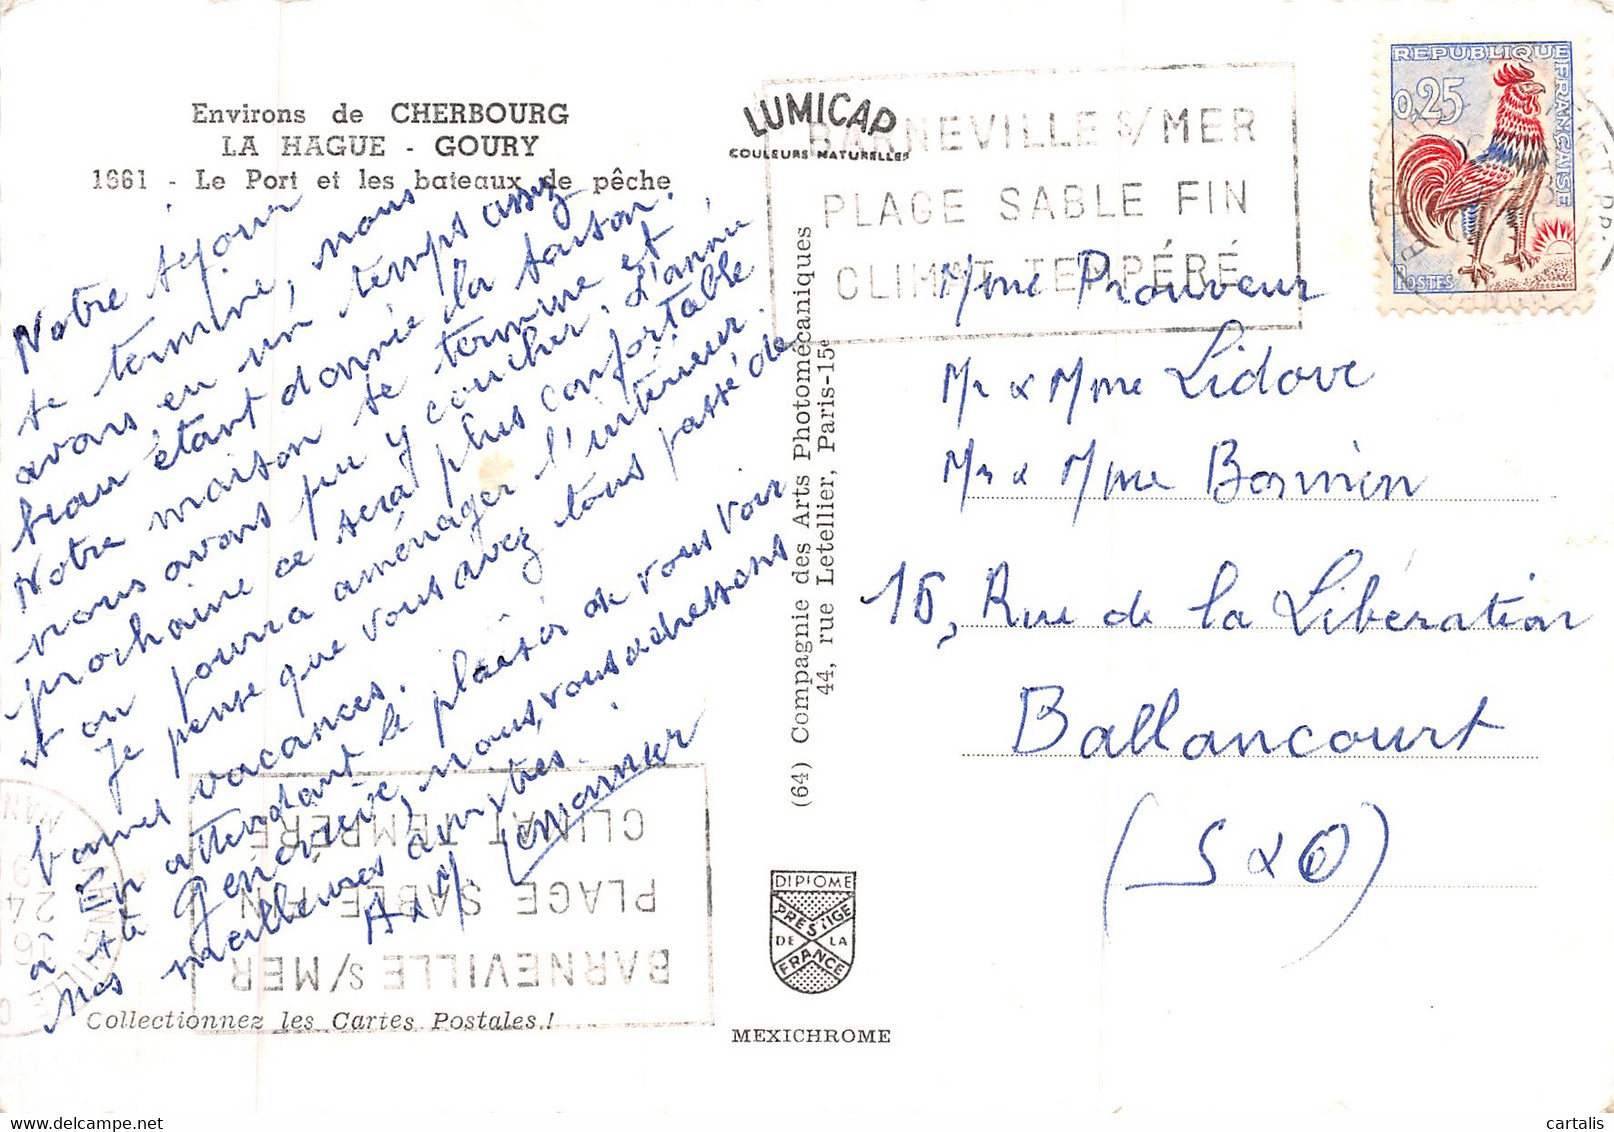 Environs de CHERBOURG
LA HAGUE - GOURY
1661 - Le Port et les bateaux de pêche
Notre séjour
se termine, nous
avons eu un temps assez
beau étant donnée la saison.
Notre maison se termine et
nous avons pu y coucher. L'année
prochaine ce sera plus confortable
et on pourra aménager l'intérieur.
Je pense que vous avez tous passé de
bonnes vacances.
En attendant le plaisir de vous voir
à Geneviève, nous, vous adressons
Nos meilleures amitiés.
A & M. Lemonnier
Collectionnez les Cartes Postales !
LUMICAP
COULEURS NATURELLES
(64) Compagnie des Arts Photomécaniques
44, rue Letellier, Paris-15e
DIPLOME
PRESTIGE
DE LA
FRANCE
MEXICHROME
BARNEVILLE S/MER
PLAGE SABLE FIN
CLIMAT TEMPÉRÉ
REPUBLIQUE FRANÇAISE
0,25
POSTES
DECARIS
Mme Prouveur
Mr & Mme Lidove
Mr & Mme Bonnin
15, Rue de la Libération
Ballancourt
(S & O)
BARNEVILLE S/MER
PLAGE SABLE FIN
CLIMAT TEMPÉRÉ
24
cartalis